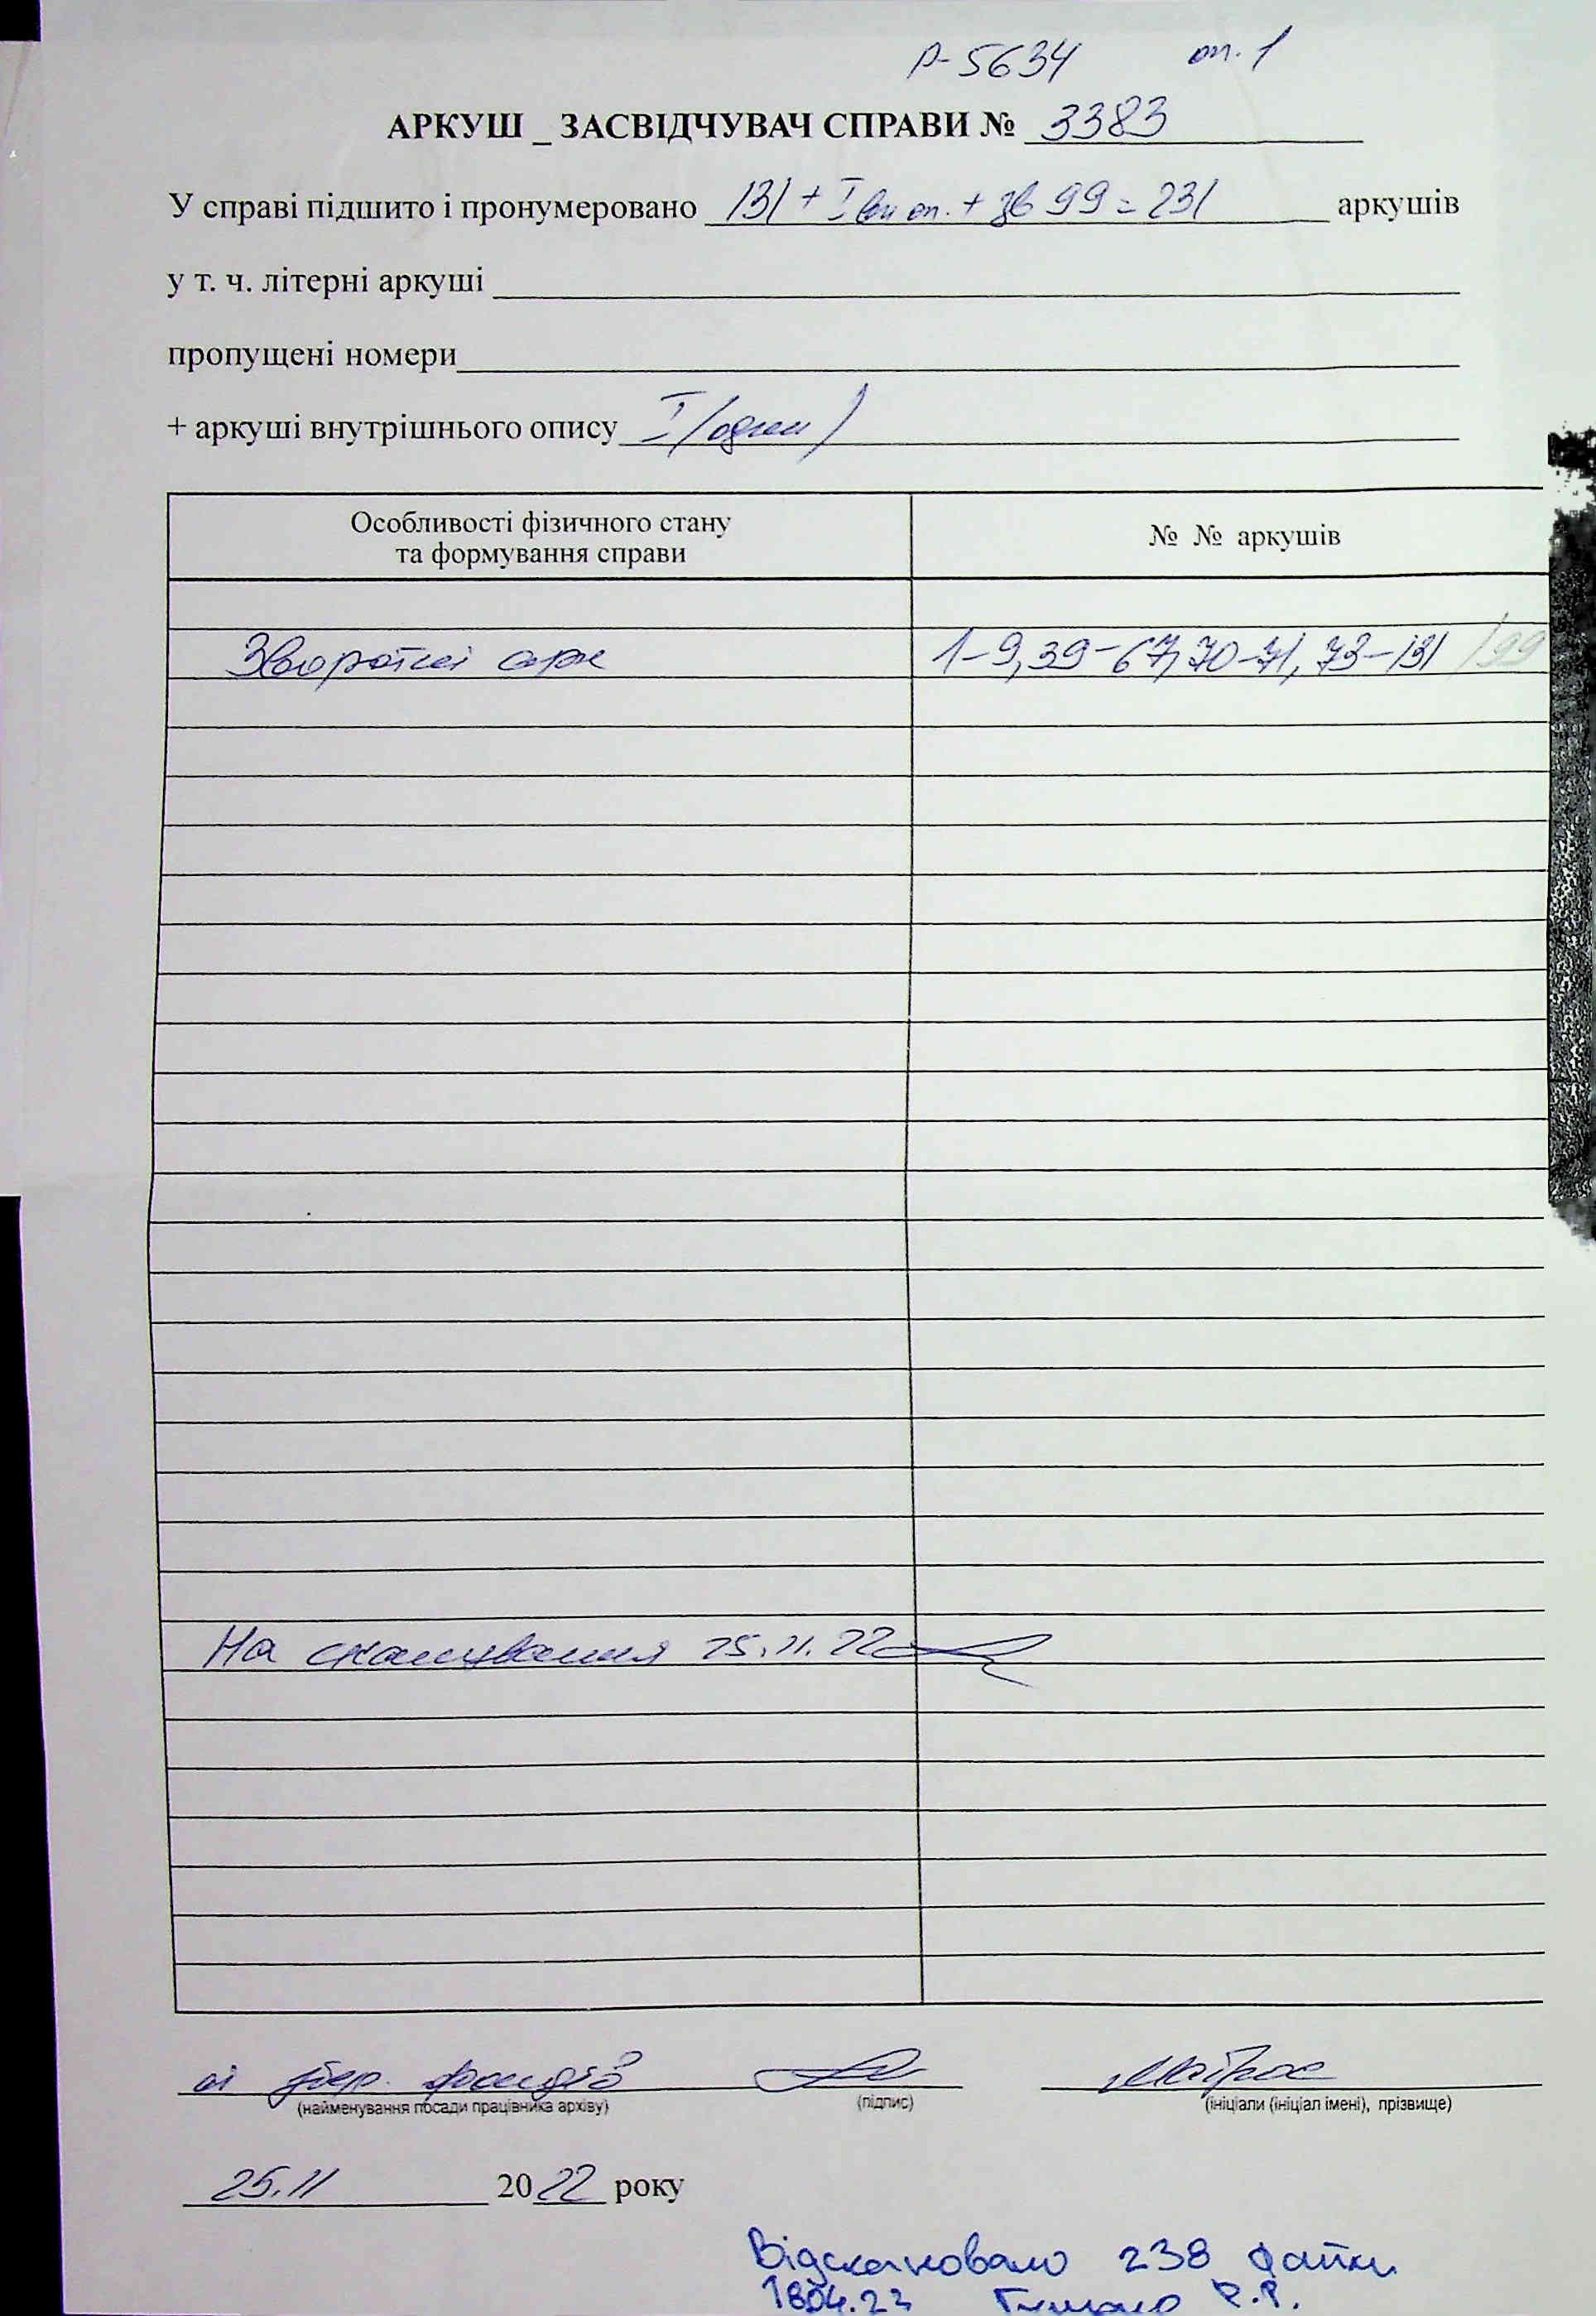 Р-5634 оп. 1
АРКУШ _ ЗАСВІДЧУВАЧ СПРАВИ № 3383
У справі підшито і пронумеровано 131 + I вн оп. + зв 99 = 231 аркушів
у т. ч. літерні аркуші
пропущені номери
+ аркуші внутрішнього опису I (один)
Особливості фізичного стану
та формування справи
№ № аркушів
Зворотні арк 1-9, 39-67, 70-71, 73-131 /99
На сканування 25.11.22
збер. фондів
(найменування посади працівника архіву) (підпис) (ініціали (ініціал імені), прізвище)
25.11 2022 року
Відскановано 238 файли
18.04.23 Р.Р.